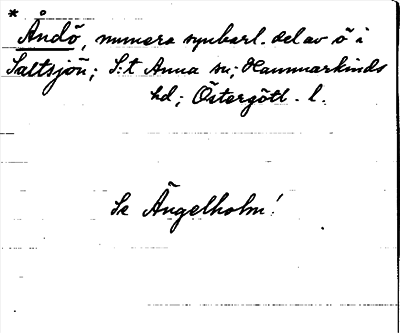 *
Åndö, numera synbarl. del av ö i
Saltsjön; S:t Anna sn; Hammarkinds
hd; Östergötl. l.
Se Ängelholm!